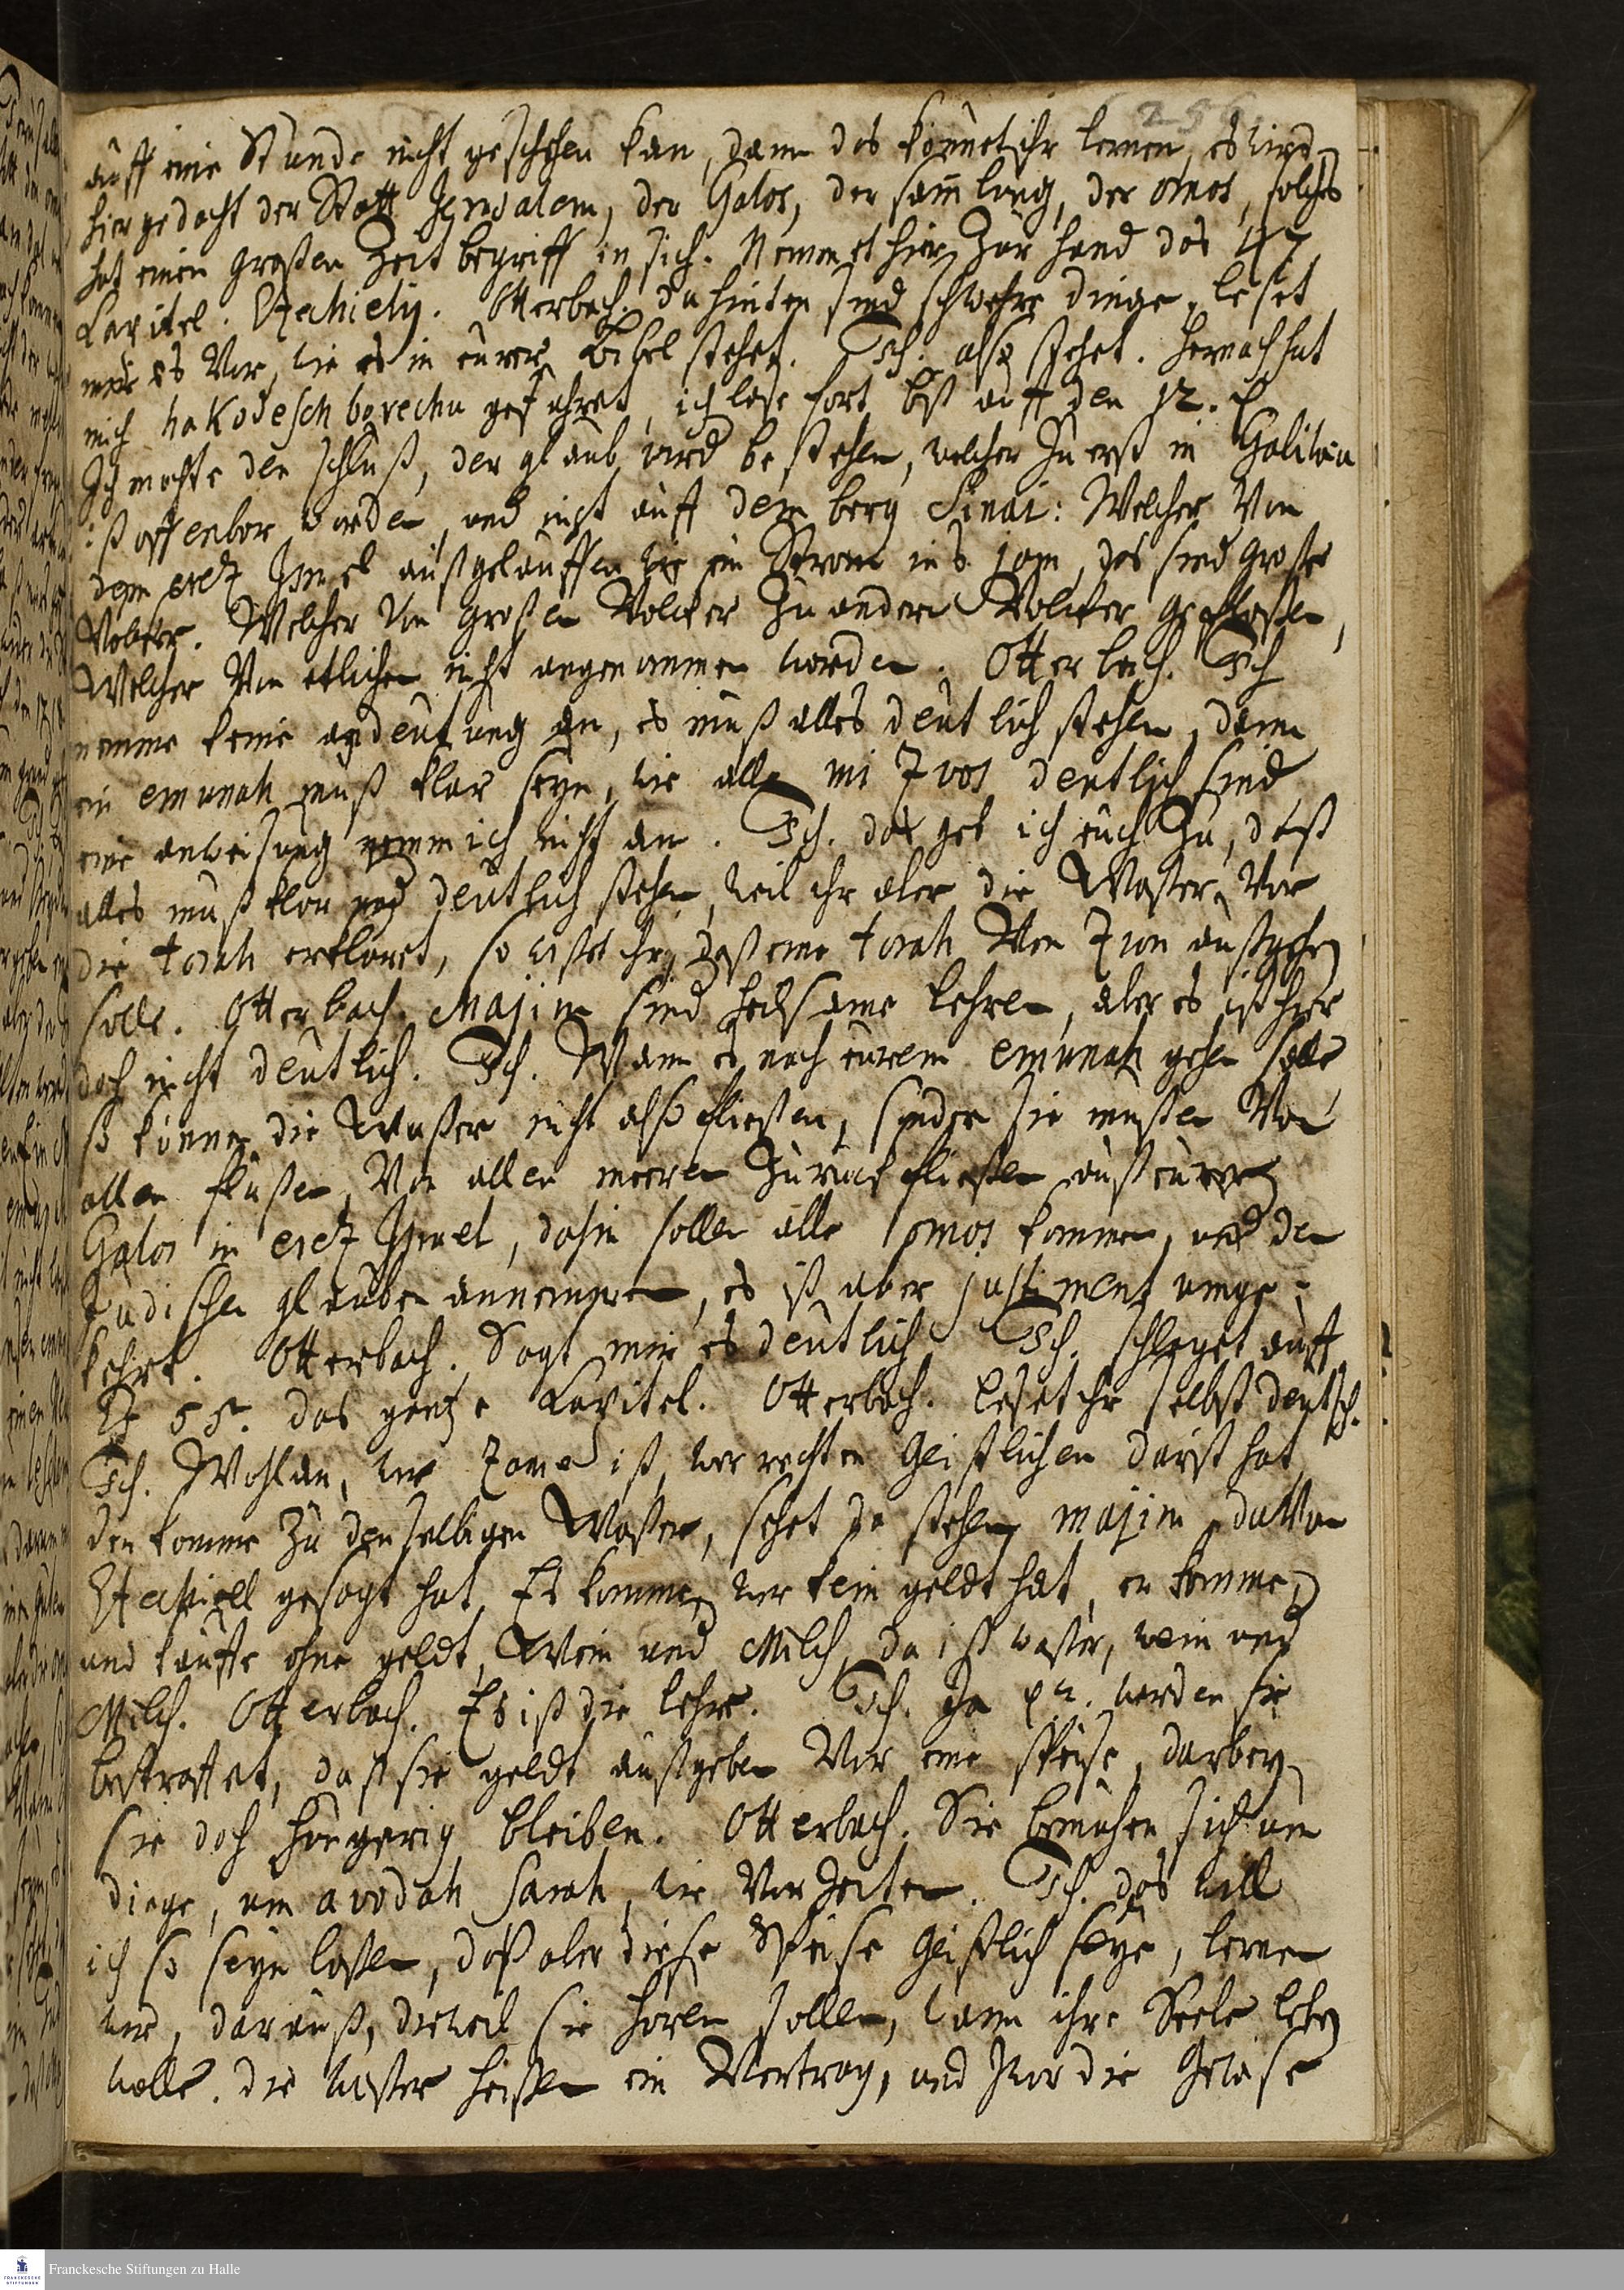 256
auff eine Stunde nicht geschehen kan, dann das könnet ihr lernen, es wird
hier gedacht der Statt Jerusalem, der Galos, der samlung, der omos, solches
hat einen großen Zeit begriff in sich. Nemmet hier zur hand das 47
Capitel. Ezechielis. Otterbach. da hinten sind schwehre dinge, leset
mir es vor, wie es in eurer Bibel stehet. Ich. also stehet. Hernach hat
mich hakodesch borechu geführet, ich lese fort biß auff den 12. v
Ich machte den schluß, der glaub wird bestehen, welcher zu erst in Galilaea
ist offenbar worden, und nicht auff dem berg Sinai: Welcher von
dem eretz Israel außgelauffen wie ein Strom ins jam, das sind große
Völcker. Welcher von großen Völcker zu andern Völcker gefloßen,
Welcher von etlichen nicht angenommen worden. Otterbach. Ich
nemme keine andeutung an, es muß alles deutlich stehen, dann
ein emunah muß klar seyn, wie alle mizvos deutlich sind
eine anweisung nemm ich nicht an. Ich. das geb ich euch zu, daß
alles muß klar und deutlich stehen, weil ihr aber die Waßer, vor
die torah erkläret, so wißet ihr, daß eine torah von Zion außgehen
solle. Otterbach. Majim sind heilsame lehren, aber es ist hier
doch nicht deutlich. Ich. Wann es nach eurem emunah gehen solle
so können die Waßer nicht also fließen, sonder sie müßen von
allen flüßen, von allen meeren zurück fließen auß eurer
Galos in eretz Israel, dahin sollen alle omos kommen, und den
Judischen glauben annemmen, es ist aber justiment umge-
kehrt. Otterbach. Sagt mir es deutlich Ich. schlaget auff
Es 55. das gantze Capitel. Otterbach. leset ihr selbst deutsch.
Ich. Wohlan, wer zome ist, wer rechten Geistlichen durst hat
den komme zu denselbigen Waßer, sehet da stehen majim davon
Ezechiel gesagt hat, Es komme, wer kein geldt hat, er komme
und kauffe ohne geldt, Wein und Milch, da ist waßer, wein und
Milch. Otterbach. Es ist die lehre. Ich. Im v 2. werden sie
bestraffet, daß sie geldt außgeben vor eine speise, darbey
sie doch hungerig bleiben. Otterbach. Sie bemühen sich um
dinge, um avodah sarah, wie vor Zeiten. Ich. das will
ich so seyn laßen, daß aber diese Speise Geistlich seye, lernen
wir, darauß, dieweil sie hören sollen, wann ihre Seele leben
wolle. die waßer heißen ein Vertrag, und zwar die